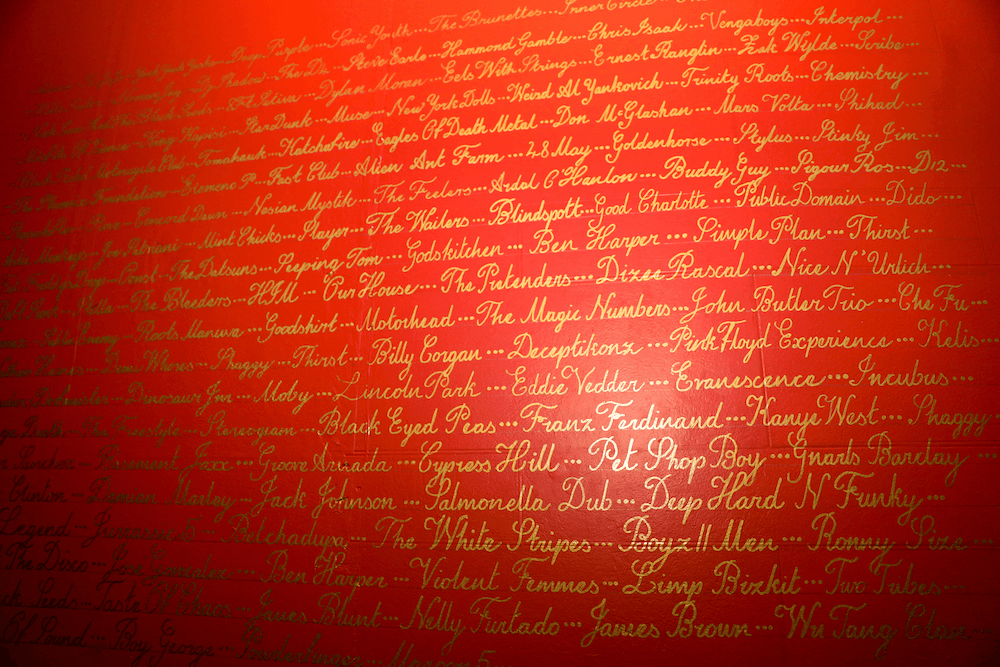 Deep Purple ... Sonic Youth ... The Brunettes ... Inner Circle ...
DJ Shadow ... The D4 ... Steve Earle ... Hammond Gamble ... Chris Isaak ... Vengaboys ... Interpol ...
Dylan Moran ... Eels With Strings ... Ernest Ranglin ... Zak Wylde ... Scribe ...
King Kapisi ... StarDunk ... Muse ... New York Dolls ... Weird Al Yankovich ... Trinity Roots ... Chemistry ...
Club ... Tomahawk ... Katchafire ... Eagles Of Death Metal ... Don McGlashan ... Mars Volta ... Shihad ...
Foundation ... Elemeno P ... Fast Club ... Alien Ant Farm ... 48May ... Goldenhorse ... Stylus ... Stinky Jim ...
Concord Dawn ... Nesian Mystik ... The Feelers ... Ardal O Hanlon ... Buddy Guy ... Sigour Ros ... D12 ...
Monkeys ... Joe Satriani ... Mint Chicks ... Slayer ... The Wailers ... Blindspott ... Good Charlotte ... Public Domain ... Dido ...
The Datsuns ... Seeping Tom ... Godskitchen ... Ben Harper ... Simple Plan ... Thirst ...
The Bleeders ... HIM ... Our House ... The Pretenders ... Dizee Rascal ... Nice N' Urlich ...
Roots Manuva ... Goodshirt ... Motorhead ... The Magic Numbers ... John Butler Trio ... Che Fu ...
Shaggy ... Thirst ... Billy Corgan ... Deceptikonz ... Pink Floyd Experience ... Kelis ...
Dinosaur Jnr ... Moby ... Lincoln Park ... Eddie Vedder ... Evanescence ... Incubus ...
The Freestyle ... Stereogram ... Black Eyed Peas ... Franz Ferdinand ... Kanye West ... Shaggy
Basement Jaxx ... Groove Armada ... Cypress Hill ... Pet Shop Boy ... Gnarls Barclay ...
Clinton ... Damian Marley ... Jack Johnson ... Salmonella Dub ... Deep Hard N Funky ...
Legend ... Jurrassic 5 ... Belchadupa ... The White Stripes ... Boyz II Men ... Ronny Size ...
The Disco ... Ben Harper ... Violent Femmes ... Limp Bizkit ... Two Tubes ...
Seeds ... Taste Of Chaos ... James Blunt ... Nelly Furtado ... James Brown ... Wu Tang Clan ...
Of Sound ... Boy George ... Maroon 5